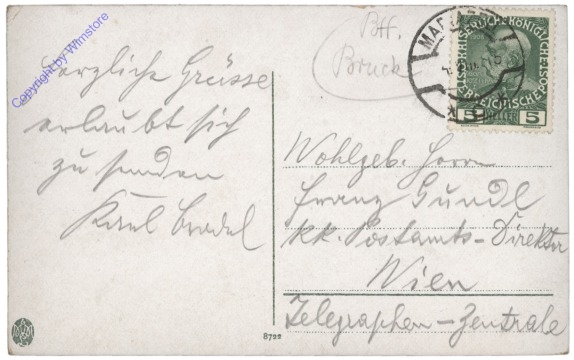 Copyright by Wlmstore
Herzliche Grüsse
erlaubt sich
zu senden
Karl
Bruck
KAISERLICHE KÖNIGLICHE
ÖSTERREICHISCHE POST
5 HELLER 5
Wohlgeb. Herrn
Franz Gundl
kk. Postamts-Direktor
Wien
Telegraphen-Zentrale
8722